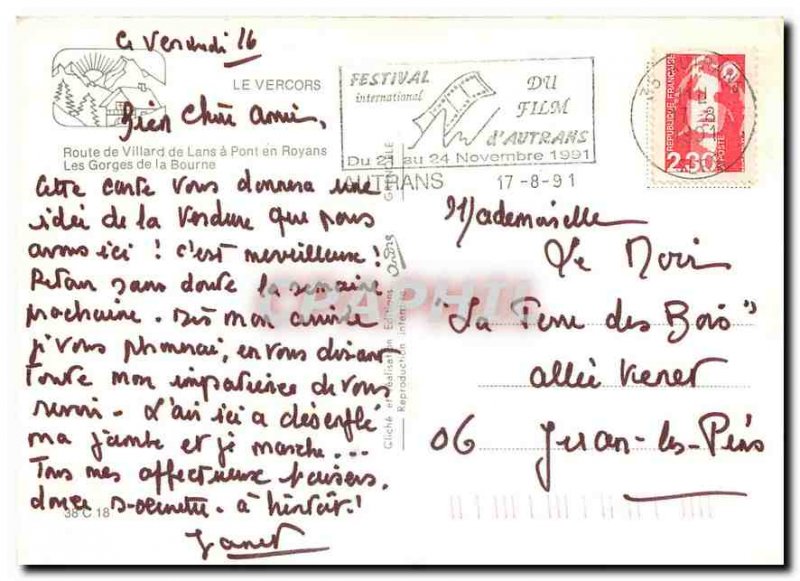 Ce Vendredi 16
LE VERCORS
Bien Chère amie,
Route de Villard de Lans à Pont en Royans
Les Gorges de la Bourne
Cette carte vous donnera une
idée de la Verdure que nous
avons ici ! c'est merveilleuse !
Retour sans doute la semaine
prochaine. Dès mon arrivée
je vous phonerai, en vous disant
toute mon impatience de vous
revoir. L'air ici a désenflé
ma jambe et je marche...
Tous mes affectueux baisers,
douce à bientôt !
38 C 18
Janet
FESTIVAL
international
DU
FILM
d'AUTRANS
Du 21 au 24 Novembre 1991
AUTRANS 17-8-91
RÉPUBLIQUE FRANÇAISE
2,30
LA POSTE
GRENOBLE
Cliché et réalisation Editions André
Reproduction interdite
CPAPHIL
Mademoiselle
Le Noir
"La Terre des Bois"
allée
06 Juan-les-Pins